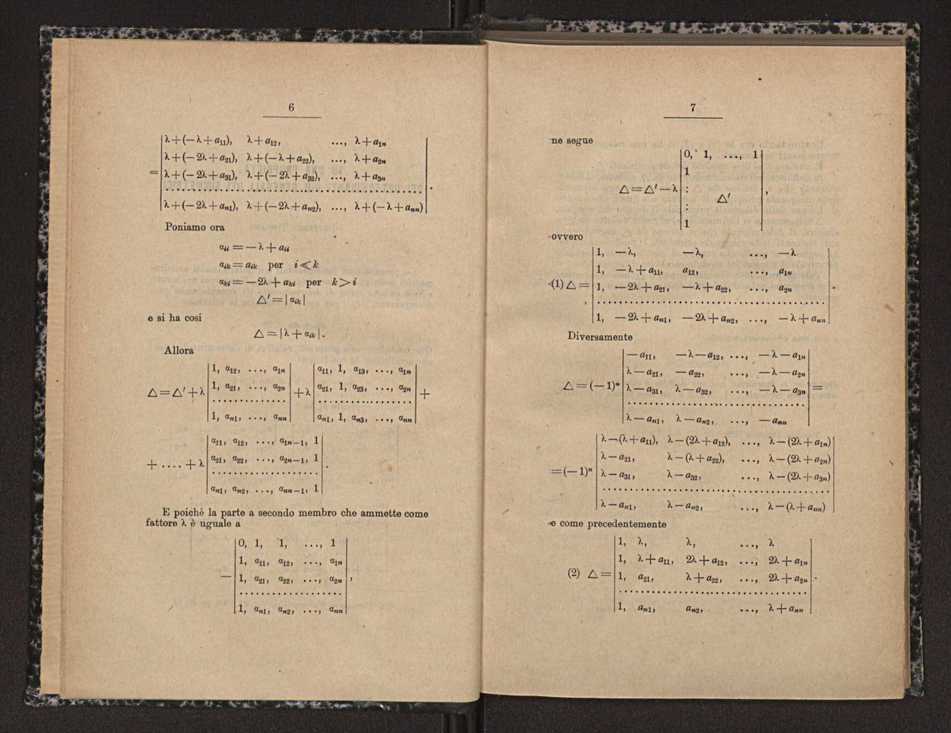 6
λ+(−λ+a₁₁), λ+a₁₂, ..., λ+a₁ₙ
λ+(−2λ+a₂₁), λ+(−λ+a₂₂), ..., λ+a₂ₙ
= λ+(−2λ+a₃₁), λ+(−2λ+a₃₂), ..., λ+a₃ₙ
........................................ .
λ+(−2λ+aₙ₁), λ+(−2λ+aₙ₂), ..., λ+(−λ+aₙₙ)
Poniamo ora
αᵢᵢ = −λ + aᵢᵢ
αᵢₖ = aᵢₖ per i < k
= −2λ + per k > i
△′ = |αᵢₖ|
e si ha così
△ = |λ + αᵢₖ|.
Allora
1, α₁₂, ..., α₁ₙ | α₁₁, 1, α₁₃, ..., α₁ₙ
△ = △′ + λ | 1, α₂₁, ..., α₂ₙ | + λ | α₂₁, 1, α₂₃, ..., α₂ₙ | +
........................................
1, αₙ₁, ..., αₙₙ | αₙ₁, 1, αₙ₃, ..., αₙₙ
α₁₁, α₁₂, ..., α₁ₙ₋₁, 1
+ .... + λ | α₂₁, α₂₂, ..., α₂ₙ₋₁, 1 | .
........................
αₙ₁, αₙ₂, ..., αₙₙ₋₁, 1
E poichè la parte a secondo membro che ammette come
fattore λ è uguale a
0, 1, 1, ..., 1
1, α₁₁, α₁₂, ..., α₁ₙ
− | 1, α₂₁, α₂₂, ..., α₂ₙ | ,
........................
1, αₙ₁, αₙ₂, ..., αₙₙ
7
ne segue
0, 1, ..., 1
1
△ = △′ − λ | : △′ | ,
:
1
ovvero
1, −λ, −λ, ..., −λ
1, −λ + a₁₁, a₁₂, ..., a₁ₙ
(1) △ = | 1, −2λ + a₂₁, −λ + a₂₂, ..., a₂ₙ | .
........................................
1, −2λ + aₙ₁, −2λ + aₙ₂, ..., −λ + aₙₙ
Diversamente
−a₁₁, −λ − a₁₂, ..., −λ − a₁ₙ
λ − a₂₁, −a₂₂, ..., −λ − a₂ₙ
△ = (−1)ⁿ | λ − a₃₁, λ − a₃₂, ..., −λ − a₃ₙ | =
........................................
λ − aₙ₁, λ − aₙ₂, ..., −aₙₙ
λ − (λ + a₁₁), λ − (2λ + a₁₂), ..., λ − (2λ + a₁ₙ)
λ − a₂₁, λ − (λ + a₂₂), ..., λ − (2λ + a₂ₙ)
= (−1)ⁿ | λ − a₃₁, λ − a₃₂, ..., λ − (2λ + a₃ₙ)
........................................
λ − aₙ₁, λ − aₙ₂, ..., λ − (λ + aₙₙ)
e come precedentemente
1, λ, λ, ..., λ
1, λ + a₁₁, 2λ + a₁₂, ..., 2λ + a₁ₙ
(2) △ = | 1, a₂₁, λ + a₂₂, ..., 2λ + a₂ₙ | .
........................................
1, aₙ₁, aₙ₂, ..., λ + aₙₙ